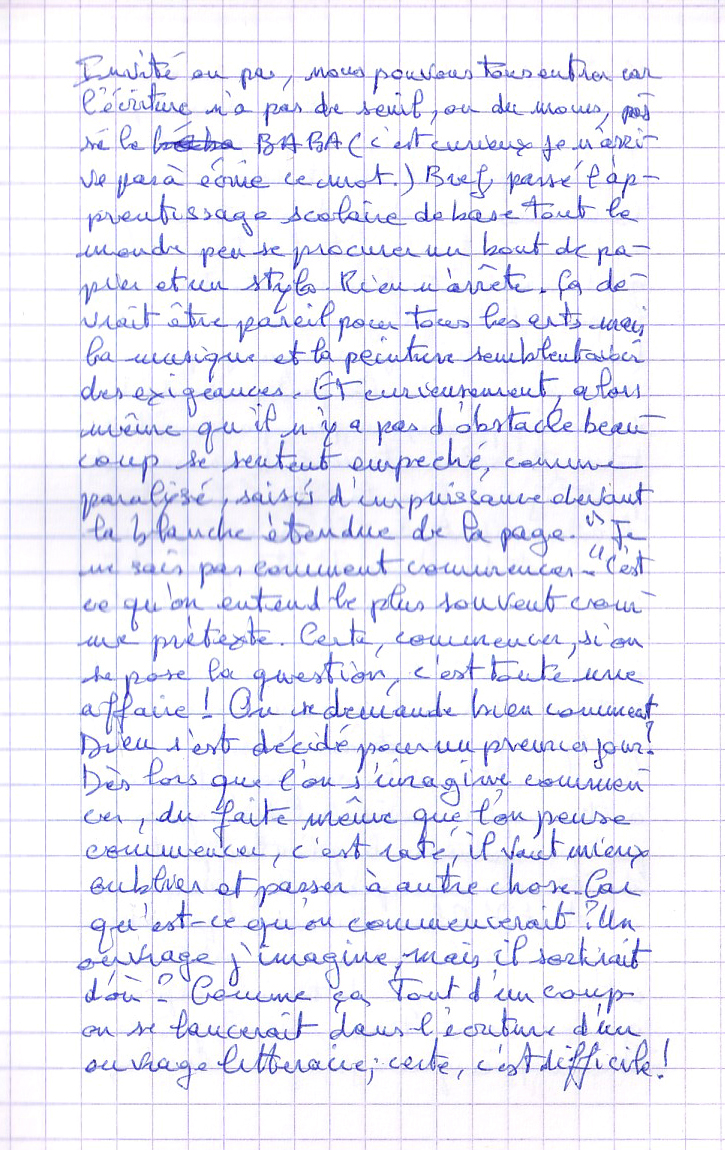 Invité ou pas, nous pouvons tous entrer car
l'écriture n'a pas de seuil, ou du moins, pas
sé le BABA (c'est curieux je n'arri-
ve pas à écrire ce mot.) Bref, passé l'ap-
prentissage scolaire de base tout le
monde peu se procurer un bout de pa-
pier et un stylo. Rien n'arrête. ça de-
vrait être pareil pour tous les arts mais
la musique et la peinture semblent avoir
des exigeances. Et curieusement, alors
même qu'il n'y a pas d'obstacle beau-
coup se sentent empeché, comme
paralysé, saisis d'impuissance devant
la blanche étendue de la page. "Je
ne sais pas comment commencer." C'est
ce qu'on entend le plus souvent com-
me prétexte. Certe, commencer, si on
se pose la question, c'est toute une
affaire! On se demande bien comment
Dieu s'est décidé pour un premier jour?
Dès lors que l'on s'imagine commen-
cer, du faite même que l'on pense
commencer, c'est raté, il vaut mieux
oublier et passer à autre chose. Car
qu'est-ce qu'on commencerait? Un
ouvrage j'imagine, mais il sortirait
d'où? Comme ça, Tout d'un coup
on se lancerait dans l'écriture d'un
ouvrage litteraire; certe, c'est difficile!